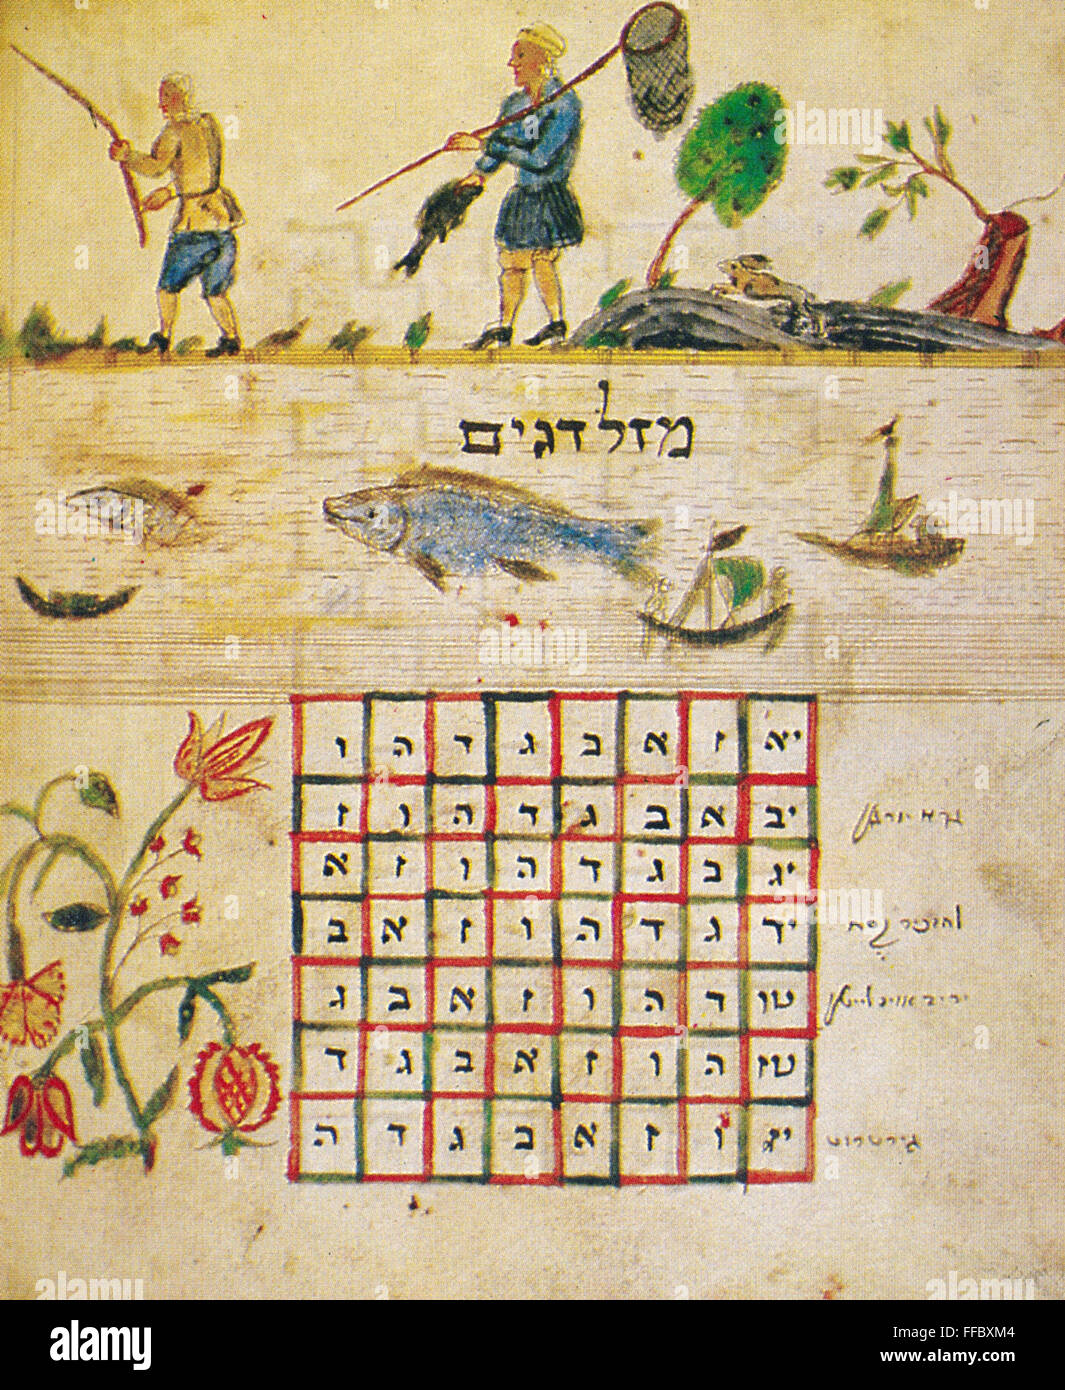 מזל דגים
יא ז א ב ג ד ה ו
יב א ב ג ד ה ו ז
יג ב ג ד ה ו ז א
יד ג ד ה ו ז א ב
טו ד ה ו ז א ב ג
טז ה ו ז א ב ג ד
יז ו ז א ב ג ד ה
גירטרוט
alamy
Image ID: FFBXM4
www.alamy.com